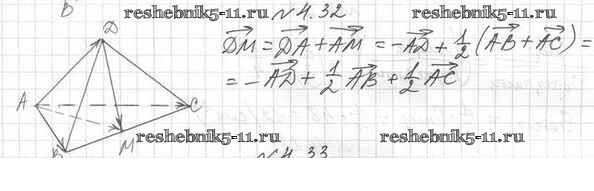 B
reshebnik5-11.ru №4.32 reshebnik5-11.ru
D
DM = DA + AM = -AD + 1/2 (AB + AC) =
= -AD + 1/2 AB + 1/2 AC
A C
M
B reshebnik5-11.ru reshebnik5-11.ru
№4.33